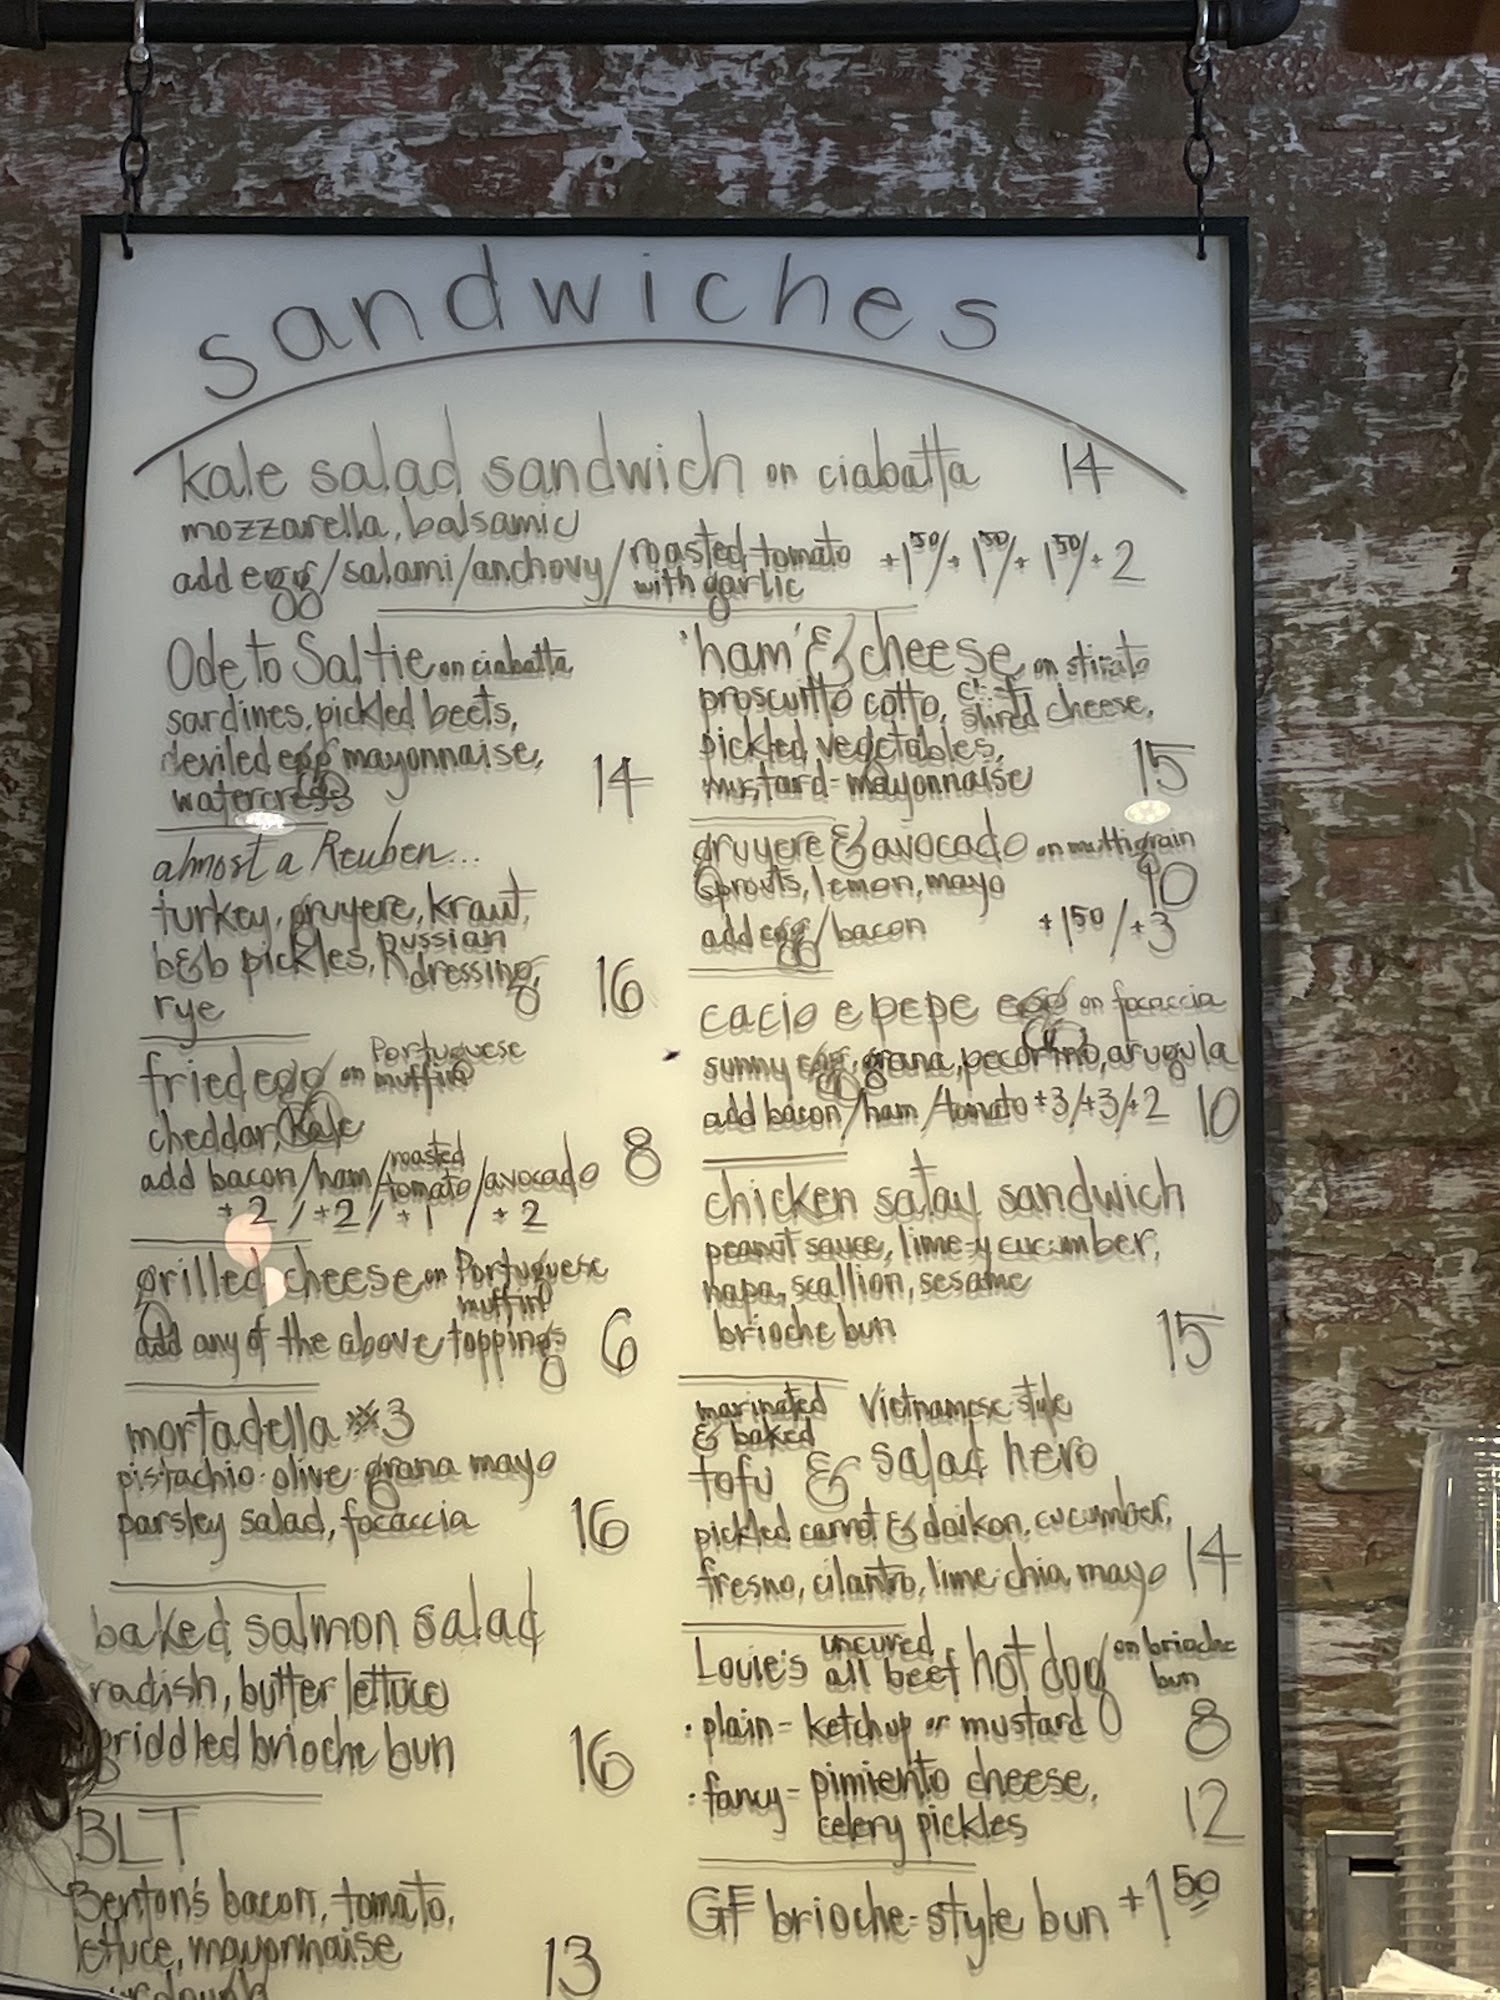 sandwiches
kale salad sandwich on ciabatta 14
mozzarella, balsamic
add egg/salami/anchovy/roasted tomato with garlic +1⁵⁰/+1⁵⁰/+1⁵⁰/+2
Ode to Saltie on ciabatta
sardines, pickled beets,
deviled egg mayonnaise,
watercress 14
almost a Reuben...
turkey, gruyere, kraut,
b&b pickles, Russian dressing,
rye 16
fried egg on Portuguese muffin
cheddar, kale
add bacon/ham/roasted tomato/avocado 8
+2/+2/+1/+2
grilled cheese on Portuguese muffin
add any of the above toppings 6
mortadella #3
pistachio-olive-grana mayo
parsley salad, focaccia 16
baked salmon salad
radish, butter lettuce
griddled brioche bun 16
BLT
Benton's bacon, tomato,
lettuce, mayonnaise 13
'ham' & cheese on stirato
prosciutto cotto, cheese,
pickled vegetables,
mustard-mayonnaise 15
gruyere & avocado on multigrain
sprouts, lemon, mayo 10
add egg/bacon +1⁵⁰/+3
cacio e pepe egg on focaccia
sunny egg, grana, pecorino, arugula
add bacon/ham/tomato +3/+3/+2 10
chicken satay sandwich
peanut sauce, lime-y cucumber,
napa, scallion, sesame
brioche bun 15
marinated & baked Vietnamese style
tofu & salad hero
pickled carrot & daikon, cucumber,
fresno, cilantro, lime-chia mayo 14
Louie's uncured all beef hot dog on brioche bun
· plain = ketchup or mustard 8
· fancy = pimiento cheese,
celery pickles 12
GF brioche-style bun +1⁵⁰